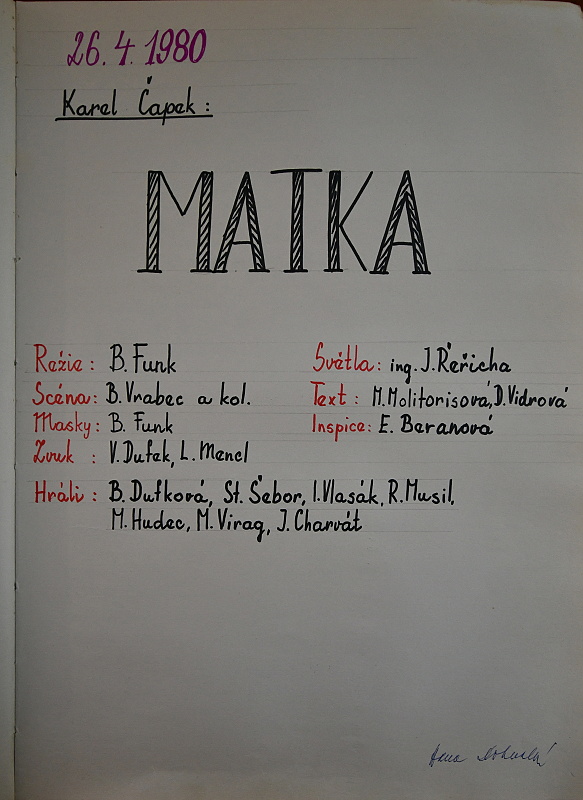 26. 4. 1980
Karel Čapek:
MATKA
Režie: B. Funk
Scéna: B. Vrabec a kol.
Masky: B. Funk
Zvuk: V. Dufek, L. Mencl
Světla: ing. J. Řeřicha
Text: M. Molitorisová, D. Vidrová
Inspice: E. Beranová
Hráli: B. Dufková, St. Šebor, I. Vlasák, R. Musil,
M. Hudec, M. Virag, J. Charvát